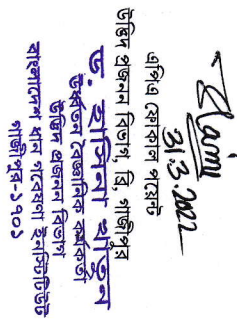 31.3.2022
এপিএ ফোকাল পয়েন্ট
উদ্ভিদ প্রজনন বিভাগ, ব্রি, গাজীপুর
ড. হাসিনা খাতুন
উর্ধ্বতন বৈজ্ঞানিক কর্মকর্তা
উদ্ভিদ প্রজনন বিভাগ
বাংলাদেশ ধান গবেষণা ইনস্টিটিউট
গাজীপুর-১৭০১